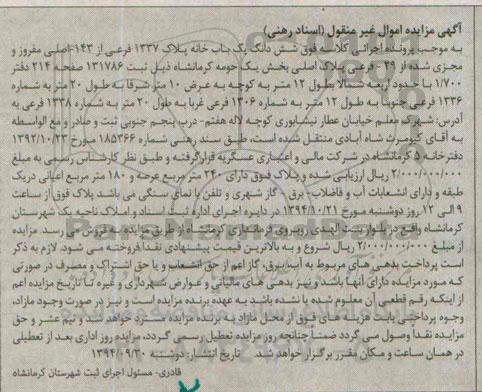 آگهی مزایده اموال غیر منقول (اسناد رهنی)
به موجب پرونده اجرائی کلاسه فوق شش دانگ یک باب خانه پلاک ۱۳۳۷ فرعی از ۱۴۳-اصلی مفروز و
مجزی شده از ۳۹ - فرعی پلاک اصلی بخش یک حومه کرمانشاه ذیل ثبت ۱۳۱۷۸۶ صفحه ۲۱۴ دفتر
۱/۷۰۰ با حدود اربعه شمالا بطول ۱۲ متر به کوچه به عرض ۱۰ متر شرقا به طول ۲۰ متر به شماره
۱۳۳۶ فرعی جنوبا به طول ۱۲ متر به شماره ۱۳۰۶ فرعی غربا به طول ۲۰ متر به شماره ۱۳۳۸ فرعی به
آدرس: شهرک معلم خیابان عطار نیشابوری کوچه لاله هفتم- درب پنجم جنوبی ثبت و صادر و مع الواسطه
به آقای کیومرث شاه آبادی منتقل شده است، طبق سند رهنی شماره ۱۸۵۳۶۶ مورخ ۱۳۹۲/۱۰/۲۳
دفترخانه ۵ کرمانشاه در شرکت مالی و اعتباری عسگریه قرار گرفته و طبق نظر کارشناس رسمی به مبلغ
۲/۰۰۰/۰۰۰/۰۰۰ ریال ارزیابی شده و پلاک فوق دارای ۲۴۰ متر مربع عرصه و ۱۸۰ متر مربع اعیانی در یک
طبقه و دارای انشعابات آب و فاضلاب- برق - گاز شهری و تلفن با نمای سنگی می باشد پلاک فوق از ساعت
۹ الی ۱۲ روز دوشنبه مورخ ۱۳۹۴/۱۰/۲۱ در دایره اجرای اداره ثبت اسناد و املاک ناحیه یک شهرستان
کرمانشاه واقع در بلوار بنت الهدی روبروی فرمانداری کرمانشاه از طریق مزایده به فروش می رسد. مزایده
از مبلغ ۲/۰۰۰/۰۰۰/۰۰۰ ریال شروع و به بالاترین قیمت پیشنهادی نقدا فروخته می شود. لازم به ذکر
است پرداخت بدهی های مربوط به آب، برق، گاز اعم از حق انشعاب و یا حق اشتراک و مصرف در صورتی
که مورد مزایده دارای آنها باشد و نیز بدهی های مالیاتی و عوارض شهرداری و غیره تا تاریخ مزایده اعم
از اینکه رقم قطعی آن معلوم شده یا نشده باشد به عهده برنده مزایده است و نیز در صورت وجود مازاد،
وجوه پرداختی بابت هزینه های فوق از محل مازاد به برنده مزایده مسترد خواهد شد و نیم عشر و حق
مزایده نقدا وصول می گردد ضمنا چنانچه روز مزایده تعطیل رسمی گردد، مزایده روز اداری بعد از تعطیلی
در همان ساعت و مکان مقرر برگزار خواهد شد. تاریخ انتشار: دوشنبه ۱۳۹۴/۰۹/۳۰
قادری- مسئول اجرای ثبت شهرستان کرمانشاه